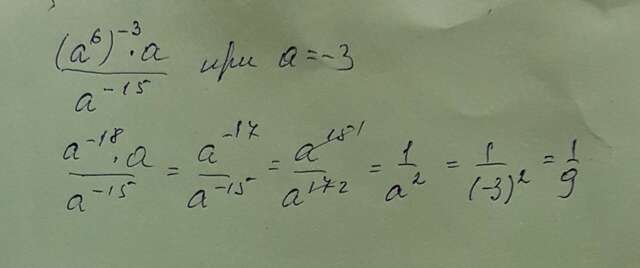 (a⁶)⁻³·a / a⁻¹⁵ при a = -3
a⁻¹⁸·a / a⁻¹⁵ = a⁻¹⁷ / a⁻¹⁵ = a¹⁵ ¹ / a¹⁷ ² = 1 / a² = 1 / (-3)² = 1 / 9